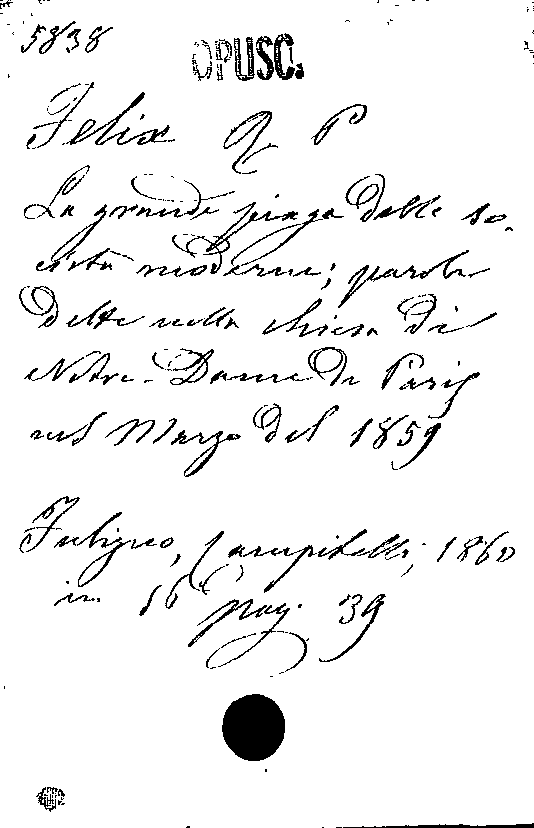 5838
OPUSC.
Felix P
La grande piaga delle so-
cietà moderne; parole
dette nella chiesa di
Notre-Dame di Parigi
nel Marzo del 1859
Foligno, Campitelli, 1860
in 16° pag. 39